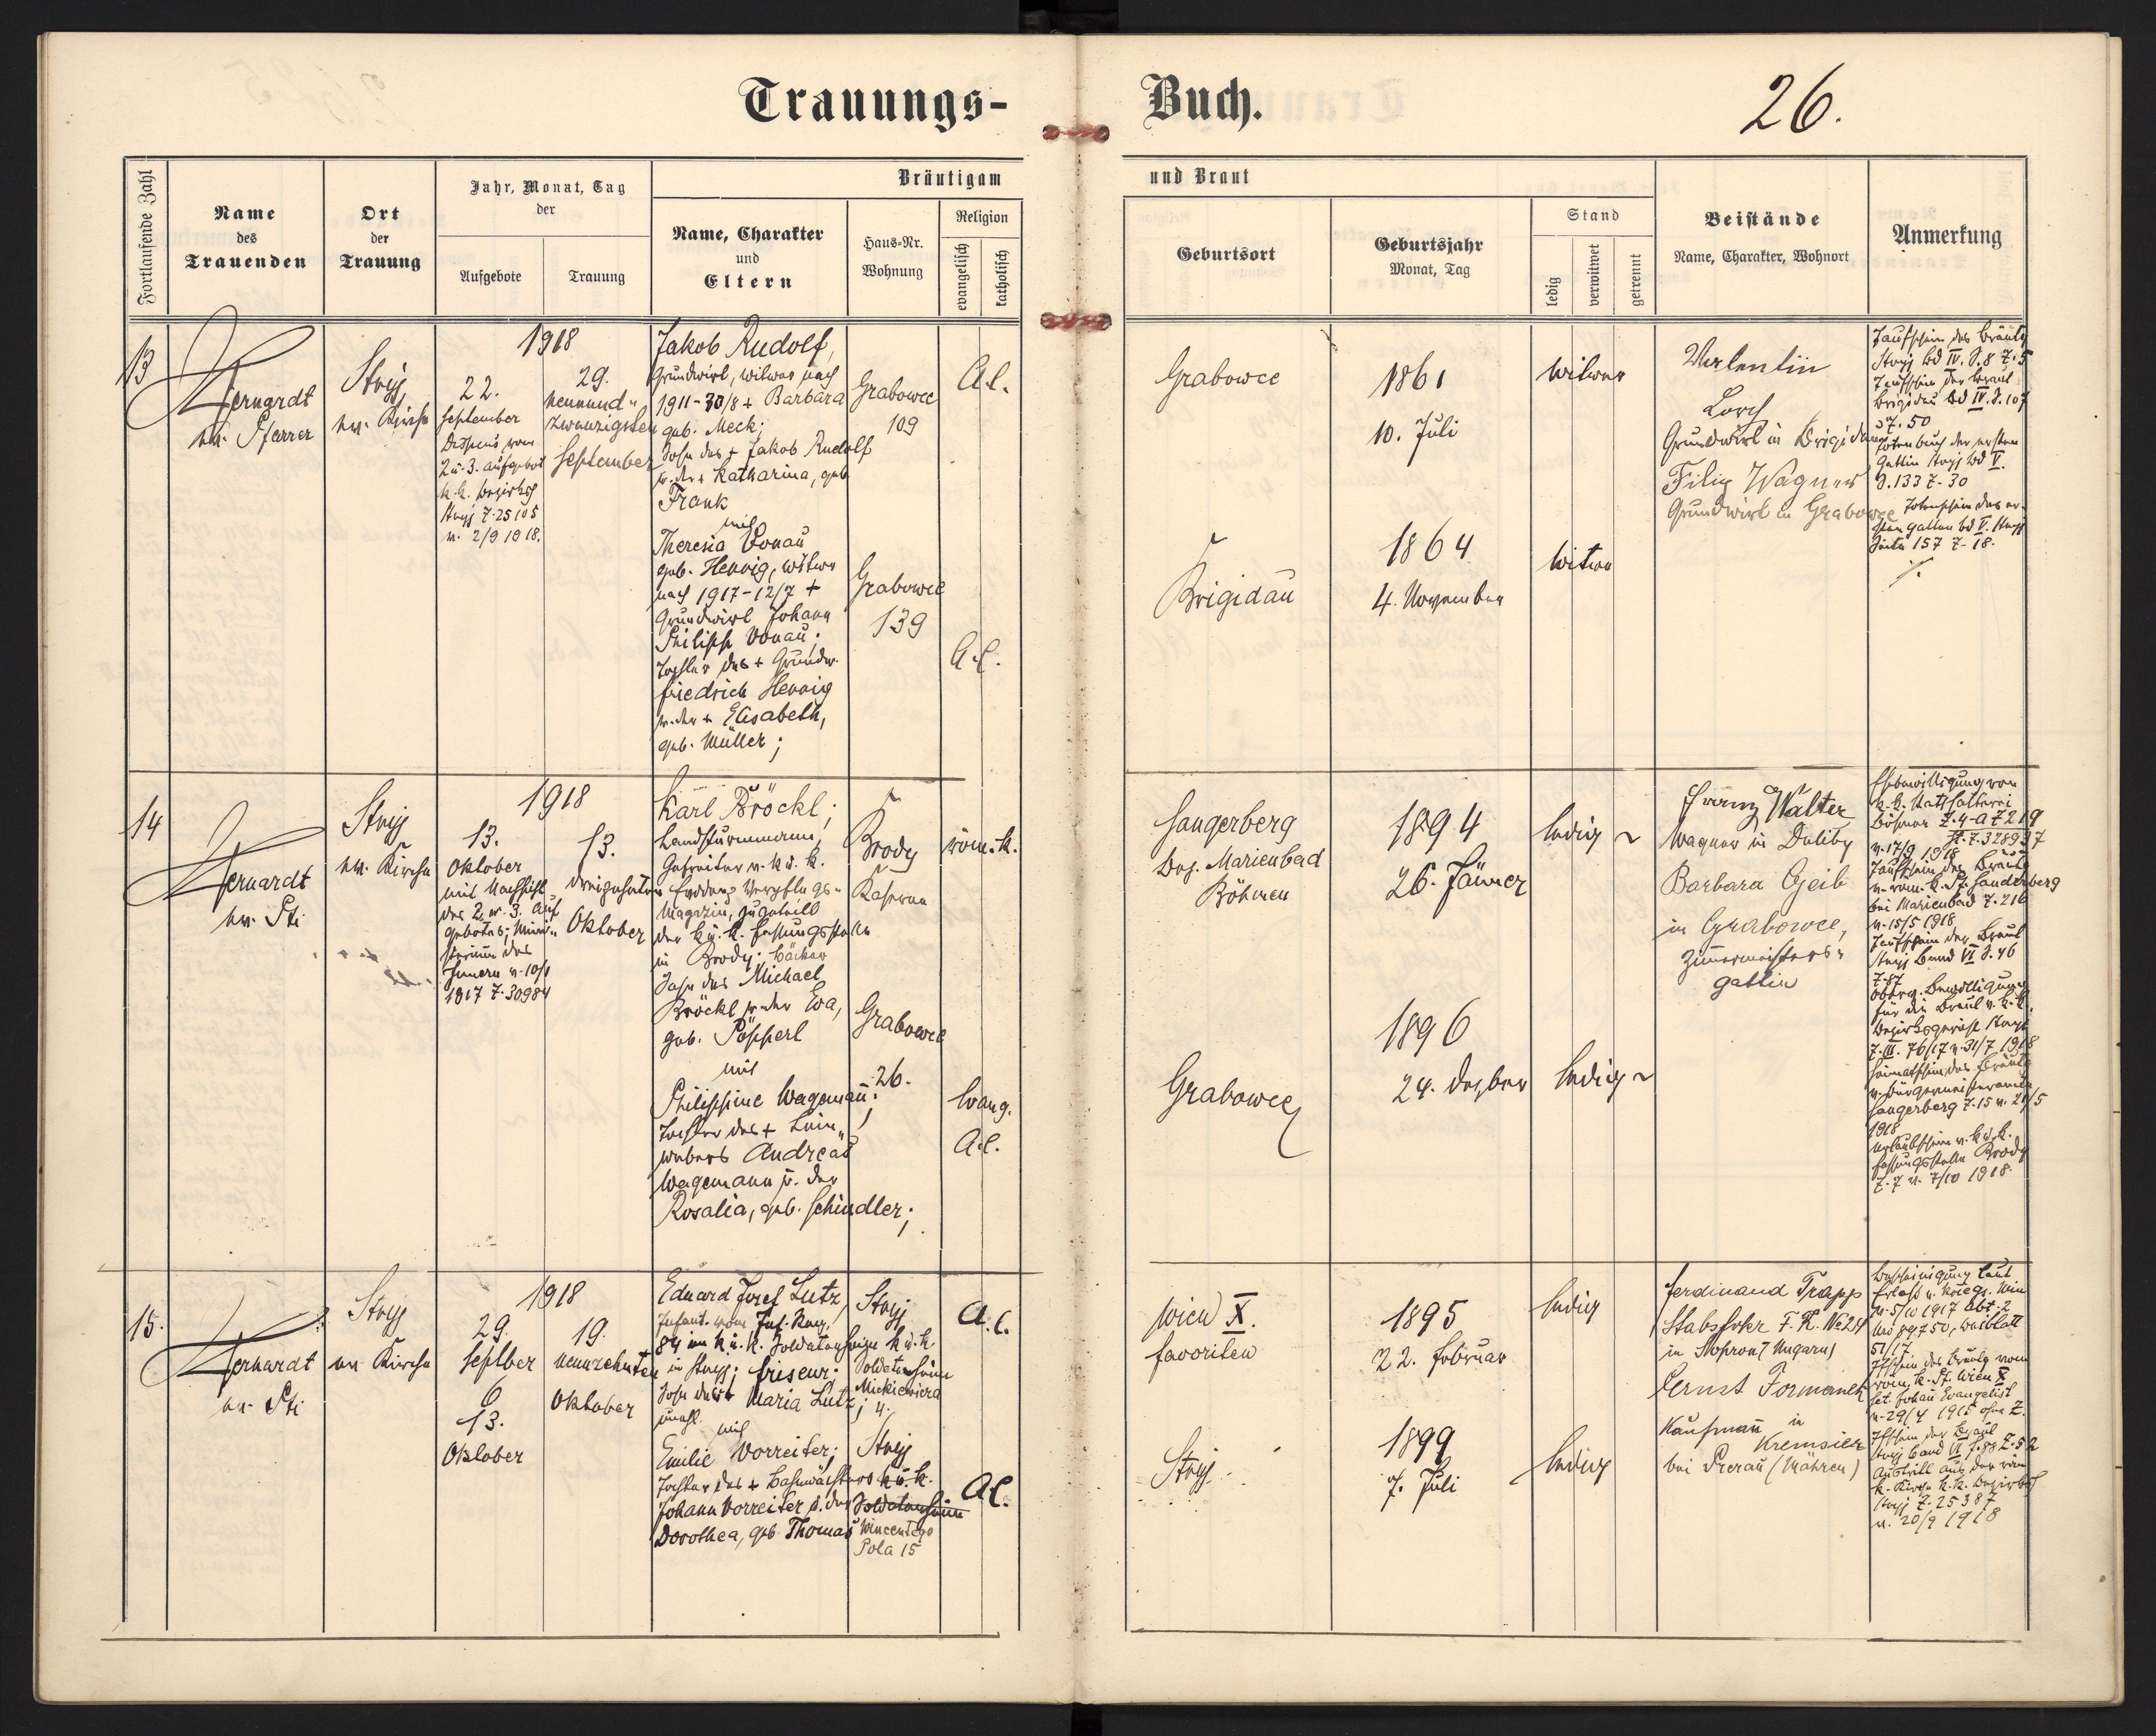 Trauungs-
Buch.
26.
Fortlaufende Zahl
Name
des
Trauenden
Ort
der
Trauung
Jahr, Monat, Tag
der
Aufgebote
Trauung
Bräutigam
Name, Charakter
und
Eltern
Haus-Nr.
Wohnung
Religion
evangelisch
katholisch
und Braut
Geburtsort
Geburtsjahr
Monat, Tag
Stand
ledig
verwitwet
getrennt
Beistände
Name, Charakter, Wohnort
Anmerkung
13
ev. Pfarrer
Stryj
ev. Kirche
1918
22.
September
Dispens vom
2 u. 3. Aufgebot
k. k. Bezirksh
Stryj Z. 25105
v. 2/9 1918.
29.
neunund-
zwanzigsten
September
Jakob Rudolf,
Grundwirt, Witwer nach
1911-30/8 + Barbara
geb. Meck;
Sohn des + Jakob Rudolf
u. der + Katharina, geb.
Frank
mit
Theresia Vonau
geb. Hennig, Witwe
nach 1917-12/7 +
Grundwirt Johann
Philipp Vonau;
Tochter des + Grundw.
Friedrich Hennig
u. der + Elisabeth,
geb. Müller;
Grabowce
109
Grabowce
139
A.C.
A.C.
Grabowce
1861
10. Juli
Witwer
Brigidau
1864
4. November
Witwe
Valentin
Lorch
Grundwirt in Brigidau
Filip Wagner
Grundwirt in Grabowce
Taufschein des Bräutg
Stryj Bd IV. S. 8 Z. 5
Taufschein der Braut
Brigidau Bd IV. S. 107
Z. 50
Totenbuch der ersten
Gattin Stryj Bd V.
S. 133 Z. 30
Totenschein des er-
sten Gatten Bd V. Stryj
Seite 157 Z. 18.
14
Stryj
ev. Kirche
1918
13.
Oktober
mit Nachsicht
des 2. u. 3. Auf
gebotes; Mini-
sterium des
Innern v. 10/1
1917 Z. 30984
13.
dreizehnten
Oktober
Karl Bröckl;
Landsturmmann,
Gefreiter v. k. u. k.
Magazin, zugeteilt
der k. u. k. Fassungsstelle
in Brody; Bäcker
Sohn des Michael
Bröckl u. der Eva,
geb. Pöpperl
mit
Philippine Wagemann;
Tochter des + Lein-
webers Andreas
Wagemann u. der
Rosalia, geb. Schindler;
Brody
Kaserne
Grabowce
26.
röm. k.
Evang.
A.C.
Sangerberg
Bez. Marienbad
Böhmen
1894
26. Jänner
ledig
Grabowce
1896
24. Dezber
ledig
Franz Walter
Wagner in Duliby
Barbara Geib
in Grabowce,
Zimmermeisters-
gattin
Ehebewilligung von
k. k. Statthalterei
v. 17/9 1918
bei Marienbad Z. 216
v. 15/5 1918
Taufschein der Braut
Stryj Band VI S. 46
Z. 87
für die Braut v. k. k.
Bezirksgericht Stryj
Heimatschein des Bräutg
v. Bürgermeisteramte
1918
Urlaubschein v. k. u. k.
Fassungsstelle Brody
Z. 7 v. 7/10 1918
15.
Stryj
ev. Kirche
1918
29.
Septber
6
13.
Oktober
19.
neunzehnten
Oktober
Eduard Josef Lutz,
Infant. vom Inf. Reg.
84 im k. u. k. Soldatenheim
in Stryj; Friseur;
Sohn der + Maria Lutz;
mit
Emilie Vorreiter;
Tochter des + Bahnwächters
Johann Vorreiter u. der
Dorothea, geb. Thomas
Stryj
k. u. k.
Soldatenheim
Mickiewicza
4.
Stryj
k. u. k.
Soldatenheim
Wincentego
Pola 15
A.C.
A.C.
Wien X.
Favoriten
1895
22. Februar
ledig
Stryj
1899
7. Juli
ledig
Ferdinand Trapp
in Sopron (Ungarn)
Ernst Formanek
Kaufmann in
Kremsier
bei Prerau (Mähren)
Bescheinigung laut
Erlass v. Kriegs. Min
v. 5/10 1917 Abt. 2
51/17.
Tfschein des Bräutg vom
röm. k. Pf. Wien X
Set. Johann Evangelist
v. 29/4 1915 ohne Z.
Tfschein der Braut
Austritt aus der röm
k. Kirche k. k. Bezirksh
Stryj Z. 25387
v. 20/9 1918